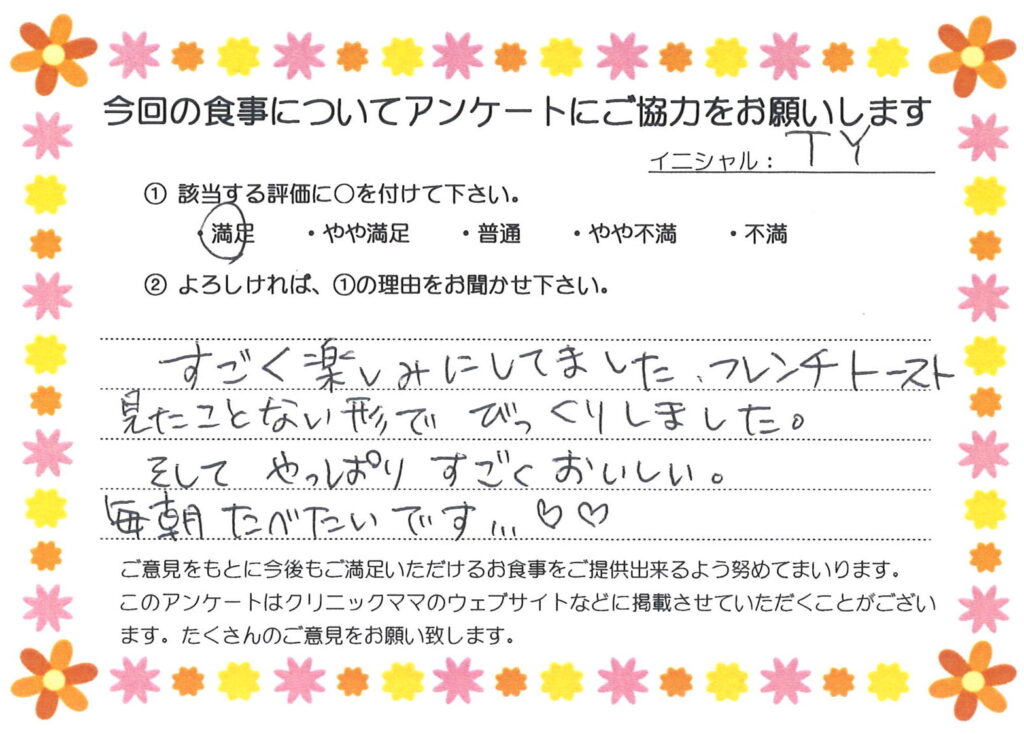 今回の食事についてアンケートにご協力をお願いします
イニシャル： TY
① 該当する評価に○を付けて下さい。
・満足 ・やや満足 ・普通 ・やや不満 ・不満
② よろしければ、①の理由をお聞かせ下さい。
すごく楽しみにしてました、フレンチトースト
見たことない形で びっくりしました。
そして やっぱり すごく おいしい。
毎朝 たべたいです… ♡♡
ご意見をもとに今後もご満足いただけるお食事をご提供出来るよう努めてまいります。
このアンケートはクリニックママのウェブサイトなどに掲載させていただくことがござい
ます。たくさんのご意見をお願い致します。